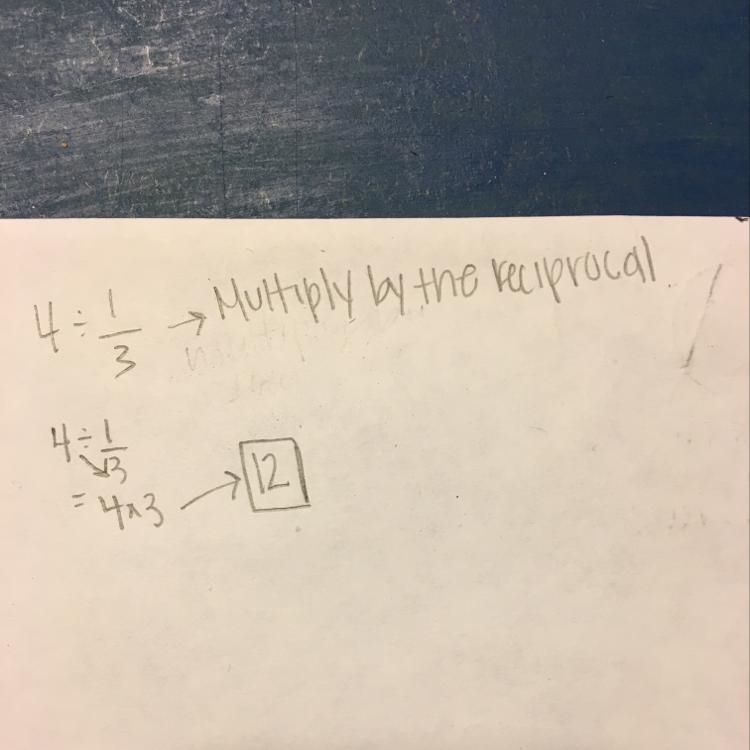 4 ÷ 1/3 → Multiply by the reciprocal
4 ÷ 1/3
= 4 x 3 → 12